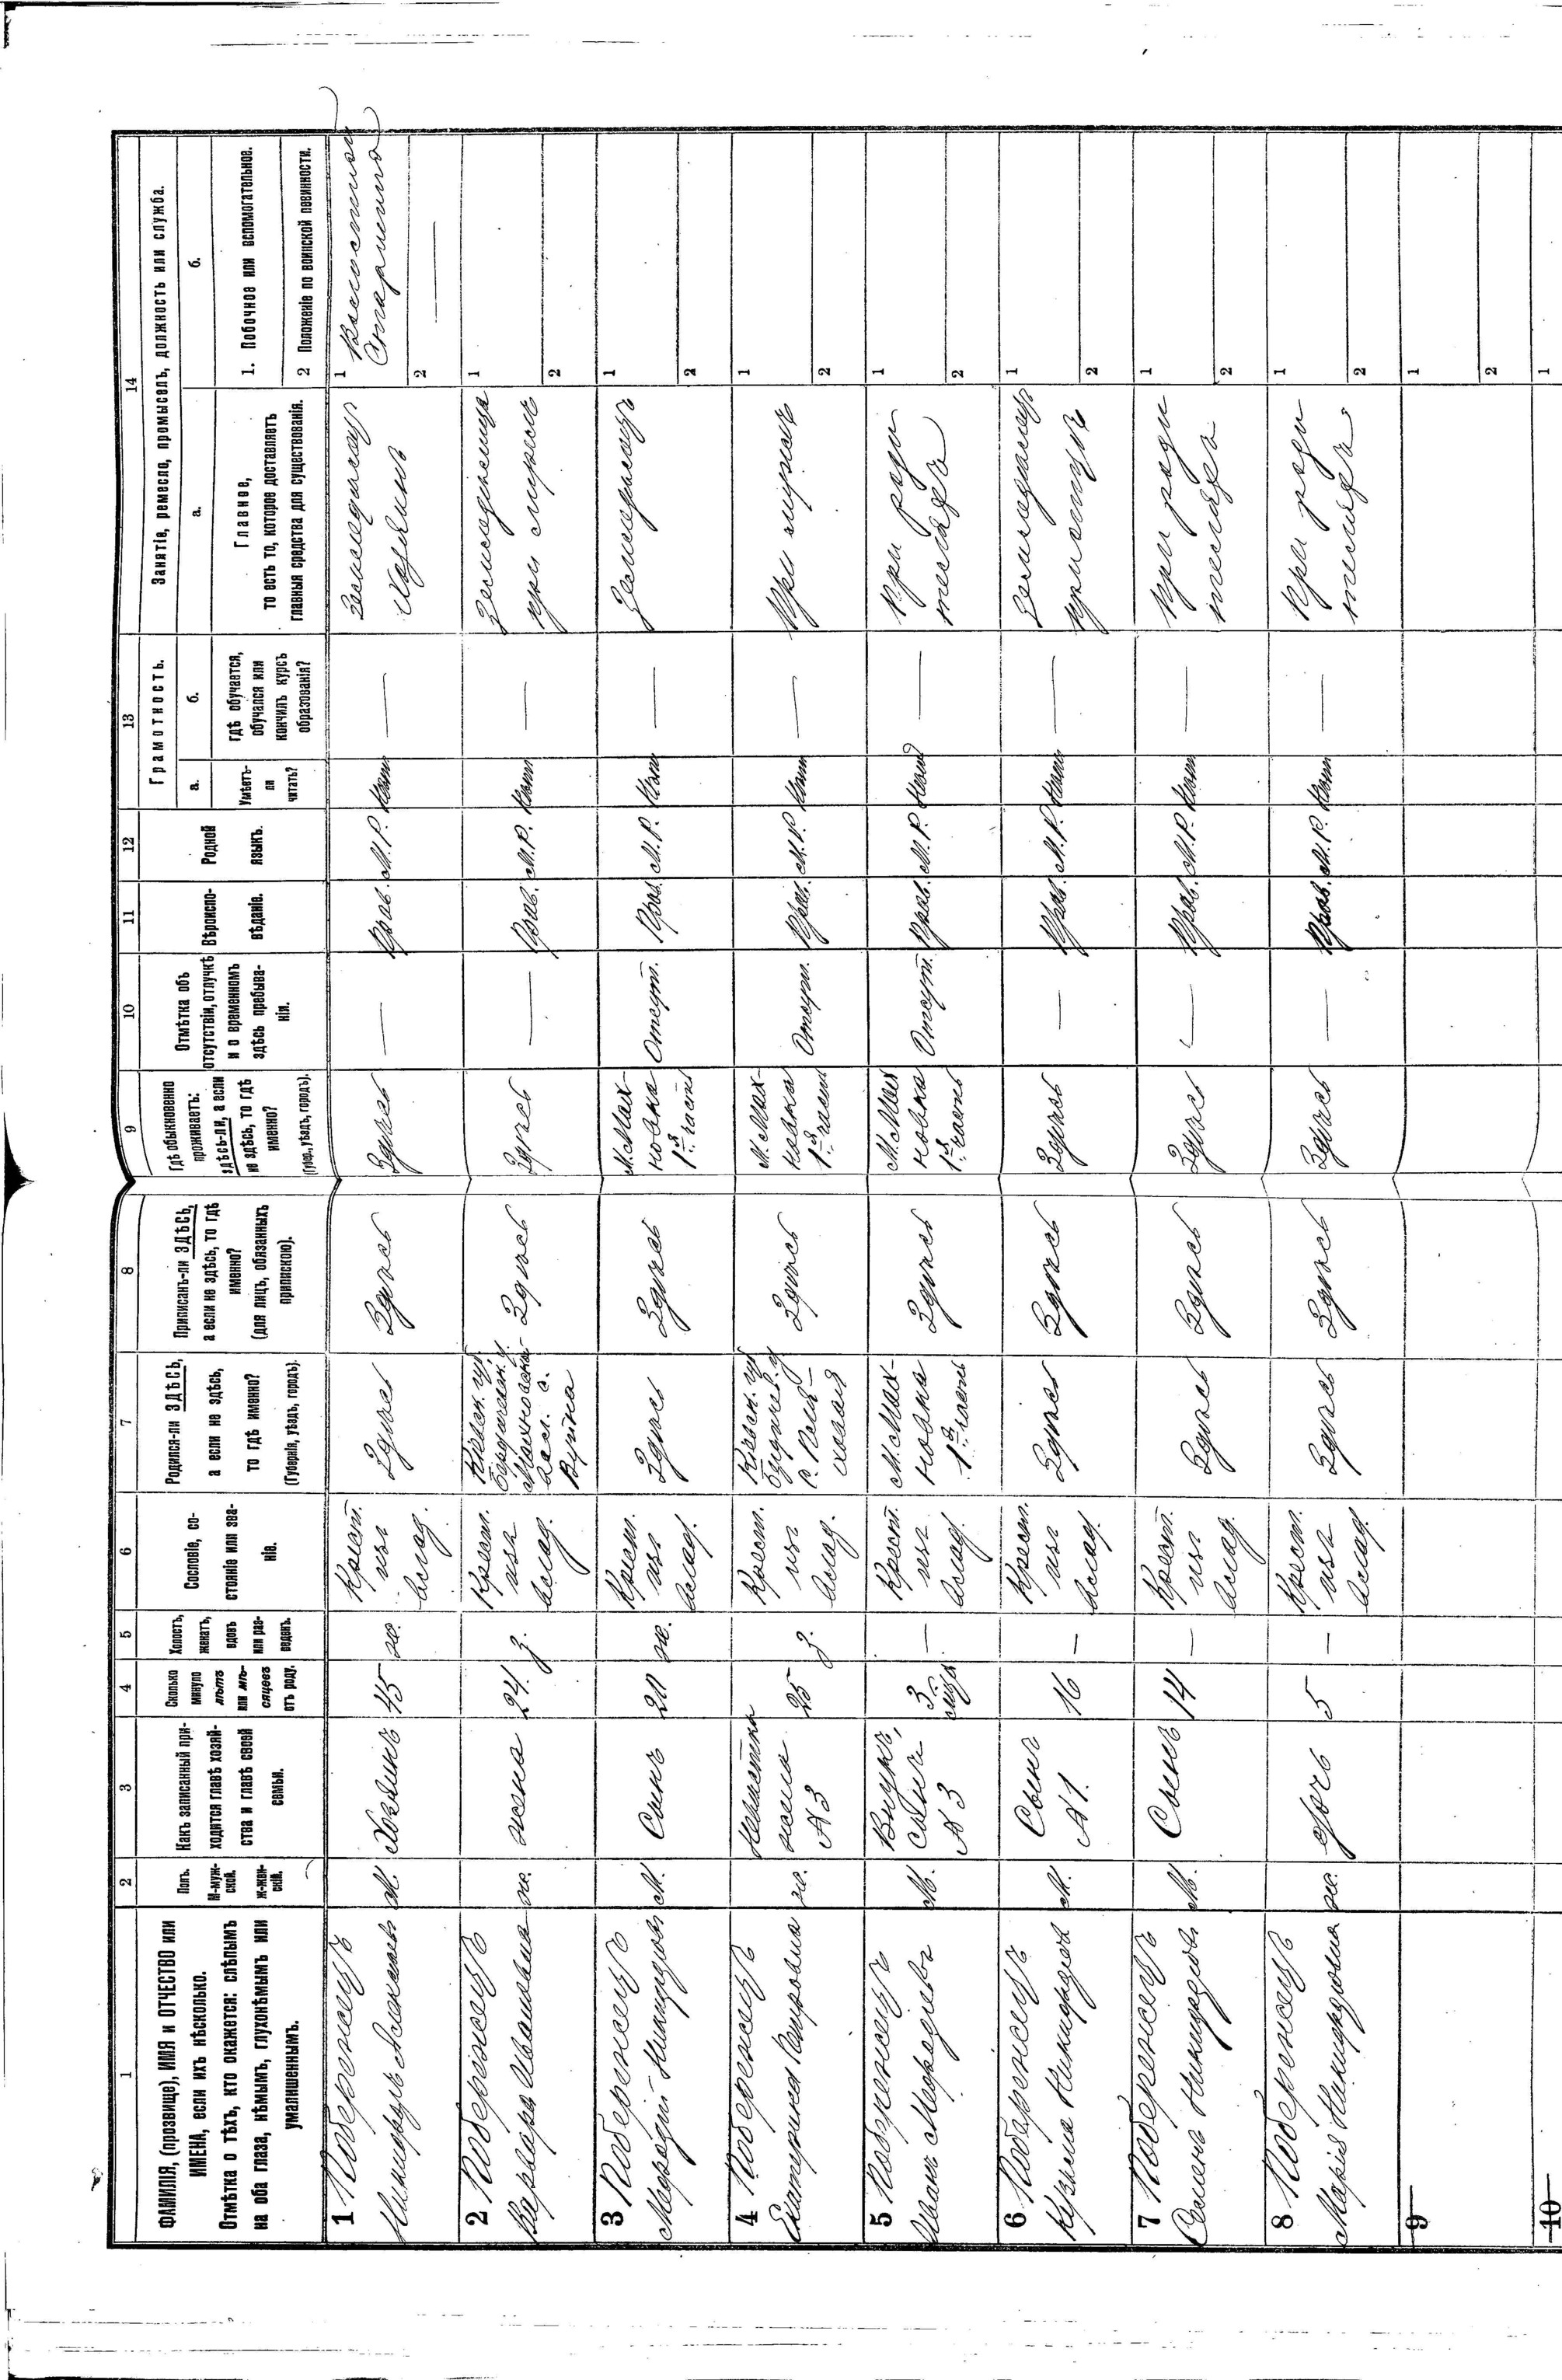 1
2
3
4
5
6
7
8
9
10
11
12
13
14
ФАМИЛІЯ, (прозвище), ИМЯ и ОТЧЕСТВО или
ИМЕНА, если ихъ нѣсколько.
Отмѣтка о тѣхъ, кто окажется: слѣпымъ
на оба глаза, нѣмымъ, глухонѣмымъ или
умалишеннымъ.
Полъ.
М-муж-
ской.
Ж-жен-
скій.
Какъ записанный при-
ходится главѣ хозяй-
ства и главѣ своей
семьи.
Сколько
минуло
лѣтъ
или мѣ-
сяцевъ
отъ роду.
Холостъ,
женатъ,
вдовъ
или раз-
веденъ.
Сословіе, со-
стояніе или зва-
ніе.
Родился-ли ЗДѢСЬ,
а если не здѣсь,
то гдѣ именно?
(Губернія, уѣздъ, городъ).
Приписанъ-ли ЗДѢСЬ,
а если не здѣсь, то гдѣ
именно?
(для лицъ, обязанныхъ
припискою).
Гдѣ обыкновенно
проживаетъ:
здѣсь-ли, а если
не здѣсь, то гдѣ
именно?
(Губер., уѣздъ, городъ).
Отмѣтка объ
отсутствіи, отлучкѣ
и о временномъ
здѣсь пребыва-
ніи.
Вѣроиспо-
вѣданіе.
Родной
языкъ.
Грамотность.
а.
Умѣетъ-
ли
читать?
б.
Гдѣ обучается,
обучался или
кончилъ курсъ
образованія?
Занятіе, ремесло, промыселъ, должность или служба.
а.
Главное,
то есть то, которое доставляетъ
главныя средства для существованія.
б.
1. Побочное или вспомогательное.
2 Положеніе по воинской повинности.
1 Побережецъ
Никифоръ
М.
Хозяинъ
45
ж.
Крест.
изъ
влад.
Здѣсь
Здѣсь
Здѣсь
—
Прав.
М.Р.
—
Земледѣлецъ
Хозяинъ
1 Волостной
Старшина
2 —
2 Побережецъ
Варвара Ивановна
ж.
жена
24.
з.
Крест.
изъ
влад.
Кіевск. губ.
Бердичевск. у.
Махновской
вол. с.
Здѣсь
Здѣсь
—
Прав.
М.Р.
—
при мужѣ
1
2
3 Побережецъ
Мефодій Никифоровъ
М.
Сынъ
20
ж.
Крест.
изъ
влад.
Здѣсь
Здѣсь
М. Мах-
новка
1я часть
Отсут.
Прав.
М.Р.
—
Земледѣлецъ
1
2
4 Побережецъ
Екатерина Петровна
ж.
Невѣстка
жена
№ 3
25
з.
Крест.
изъ
влад.
Кіевск. губ.
Бердичев. у.
Здѣсь
М. Мах-
новка
1я часть
Отсут.
Прав.
М.Р.
—
При мужѣ
1
2
5 Побережецъ
Иванъ Мефодіевъ
М.
Внукъ,
сынъ
№ 3
3
—
Крест.
изъ
влад.
М. Мах-
новка
1я часть
Здѣсь
М. Мах-
новка
1я часть
Отсут.
Прав.
М.Р.
—
При роди
теляхъ
1
2
6 Побережецъ
Кузьма Никифоров
М.
Сынъ
№ 1.
16
—
Крест.
изъ
влад.
Здѣсь
Здѣсь
Здѣсь
—
Прав.
М.Р.
—
1
2
7 Побережецъ
Семенъ Никифоровъ
М.
Сынъ
14
—
Крест.
изъ
влад.
Здѣсь
Здѣсь
Здѣсь
—
Прав.
М.Р.
—
При роди
теляхъ
1
2
8 Побережецъ
Марія Никифоровна
ж.
дочь
5
—
Крест.
изъ
влад.
Здѣсь
Здѣсь
Здѣсь
—
Прав.
М.Р.
—
При роди
теляхъ
1
2
9
1
2
10
1